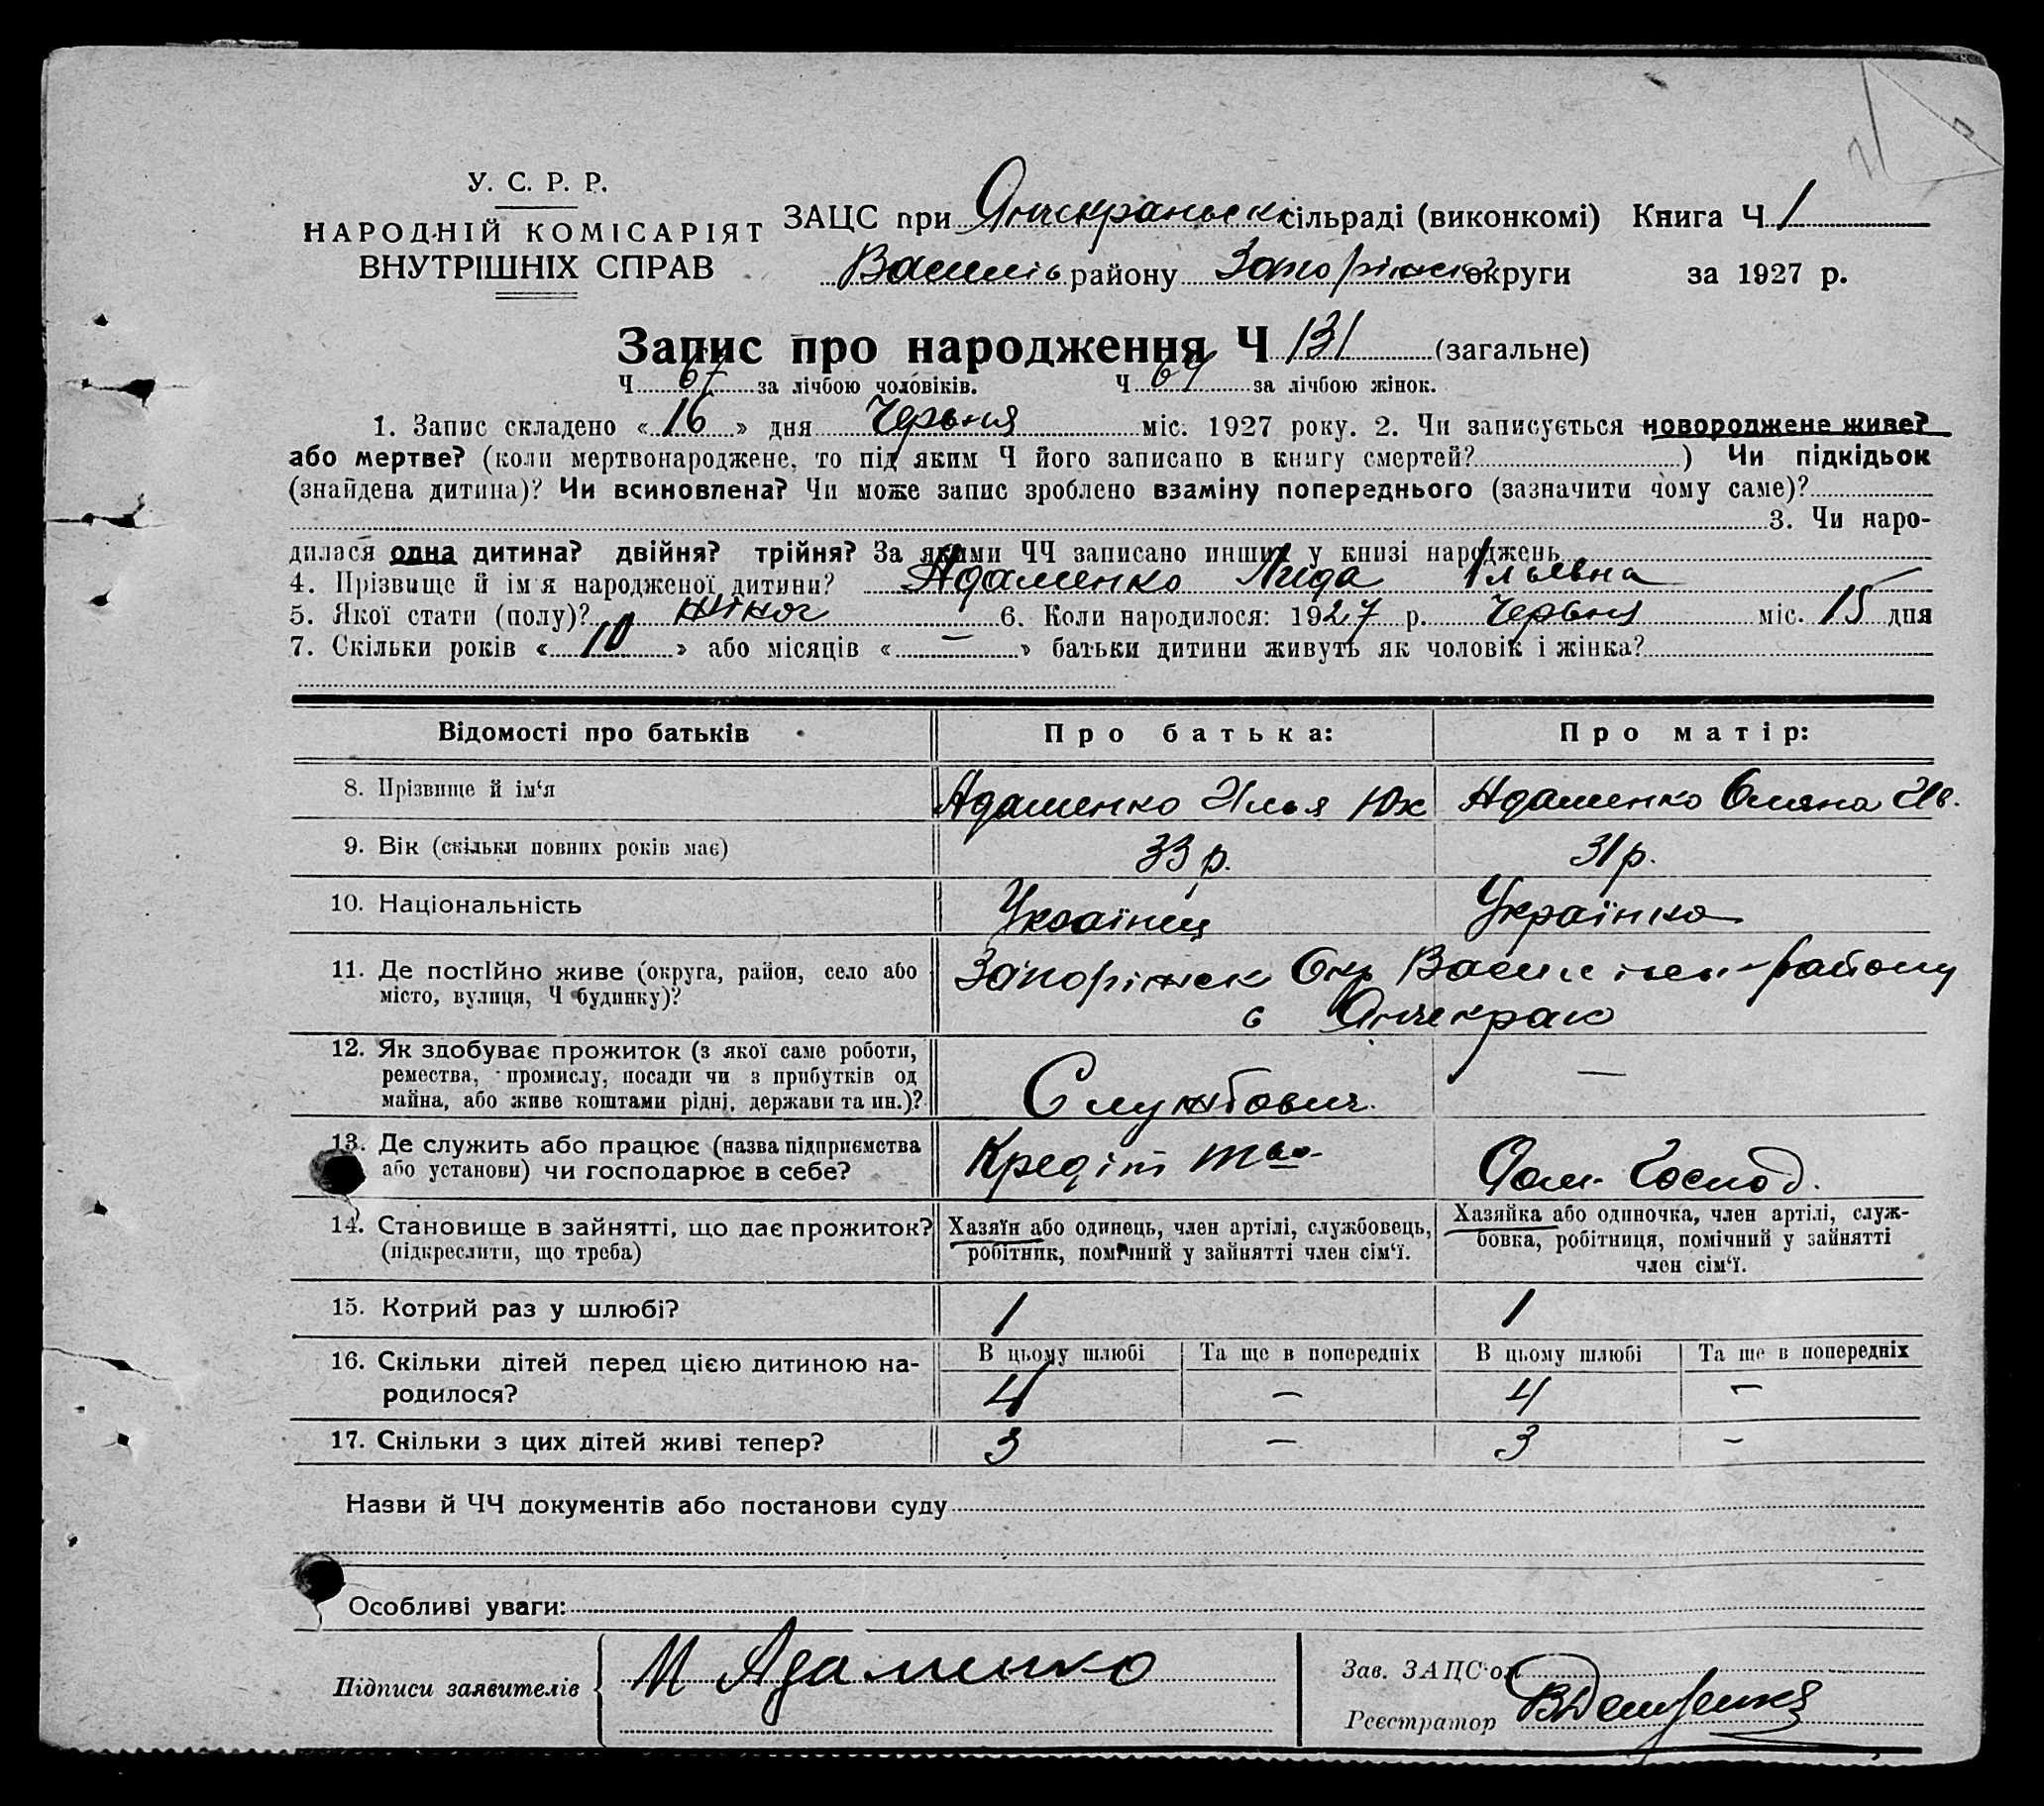 У. С. Р. Р.
НАРОДНІЙ КОМІСАРІЯТ
ВНУТРІШНІХ СПРАВ
ЗАЦС при Янчекраньск сільраді (виконкомі) Книга Ч 1
Василів району Запоріжськ округи за 1927 р.
Запис про народження Ч 131 (загальне)
Ч 67 за лічбою чоловіків. Ч 64 за лічбою жінок.
1. Запис складено « 16 » дня Червня міс. 1927 року. 2. Чи записується новороджене живе?
або мертве? (коли мертвонароджене, то під яким Ч його записано в книгу смертей?) Чи підкідьок
(знайдена дитина)? Чи всиновлена? Чи може запис зроблено взаміну попереднього (зазначити чому саме)?
3. Чи наро-
дилася одна дитина? двійня? трійня? За якими ЧЧ записано инших у книзі народжень
4. Прізвище й ім'я народженої дитини? Адаменко Лида Ільевна
5. Якої стати (полу)? жіноч 6. Коли народилося: 1927 р. Червня міс. 15 дня
7. Скільки років « 10 » або місяців « — » батьки дитини живуть як чоловік і жінка?
Відомості про батьків Про батька: Про матір:
8. Прізвище й ім'я Адаменко Илья Юх Адаменко Оляна Ив.
9. Вік (скільки повних років має) 33 р. 31 р.
10. Національність Українец Українка
11. Де постійно живе (округа, район, село або Запоріжск Окр Василівск району
місто, вулиця, Ч будинку)? с Янчекрак
12. Як здобуває прожиток (з якої саме роботи,
ремества, промислу, посади чи з прибутків од
майна, або живе коштами рідні, держави та ин.)? Службович. —
13. Де служить або працює (назва підприємства Кредіт тво
або установи) чи господарює в себе? Дом. Господ.
14. Становище в зайнятті, що дає прожиток? Хазяїн або одинець, член артілі, службовець, Хазяйка або одиночка, член артілі, служ-
(підкреслити, що треба) робітник, помічний у зайнятті член сім'ї. бовка, робітниця, помічний у зайнятті
член сім'ї.
15. Котрий раз у шлюбі? 1 1
16. Скільки дітей перед цією дитиною на- В цьому шлюбі Та ще в попередніх В цьому шлюбі Та ще в попередніх
родилося? 4 — 4 —
17. Скільки з цих дітей живі тепер? 3 — 3 —
Назви й ЧЧ документів або постанови суду
Особливі уваги:
Підписи заявителів И Адаменко
Зав. ЗАЦС'ом
Реєстратор